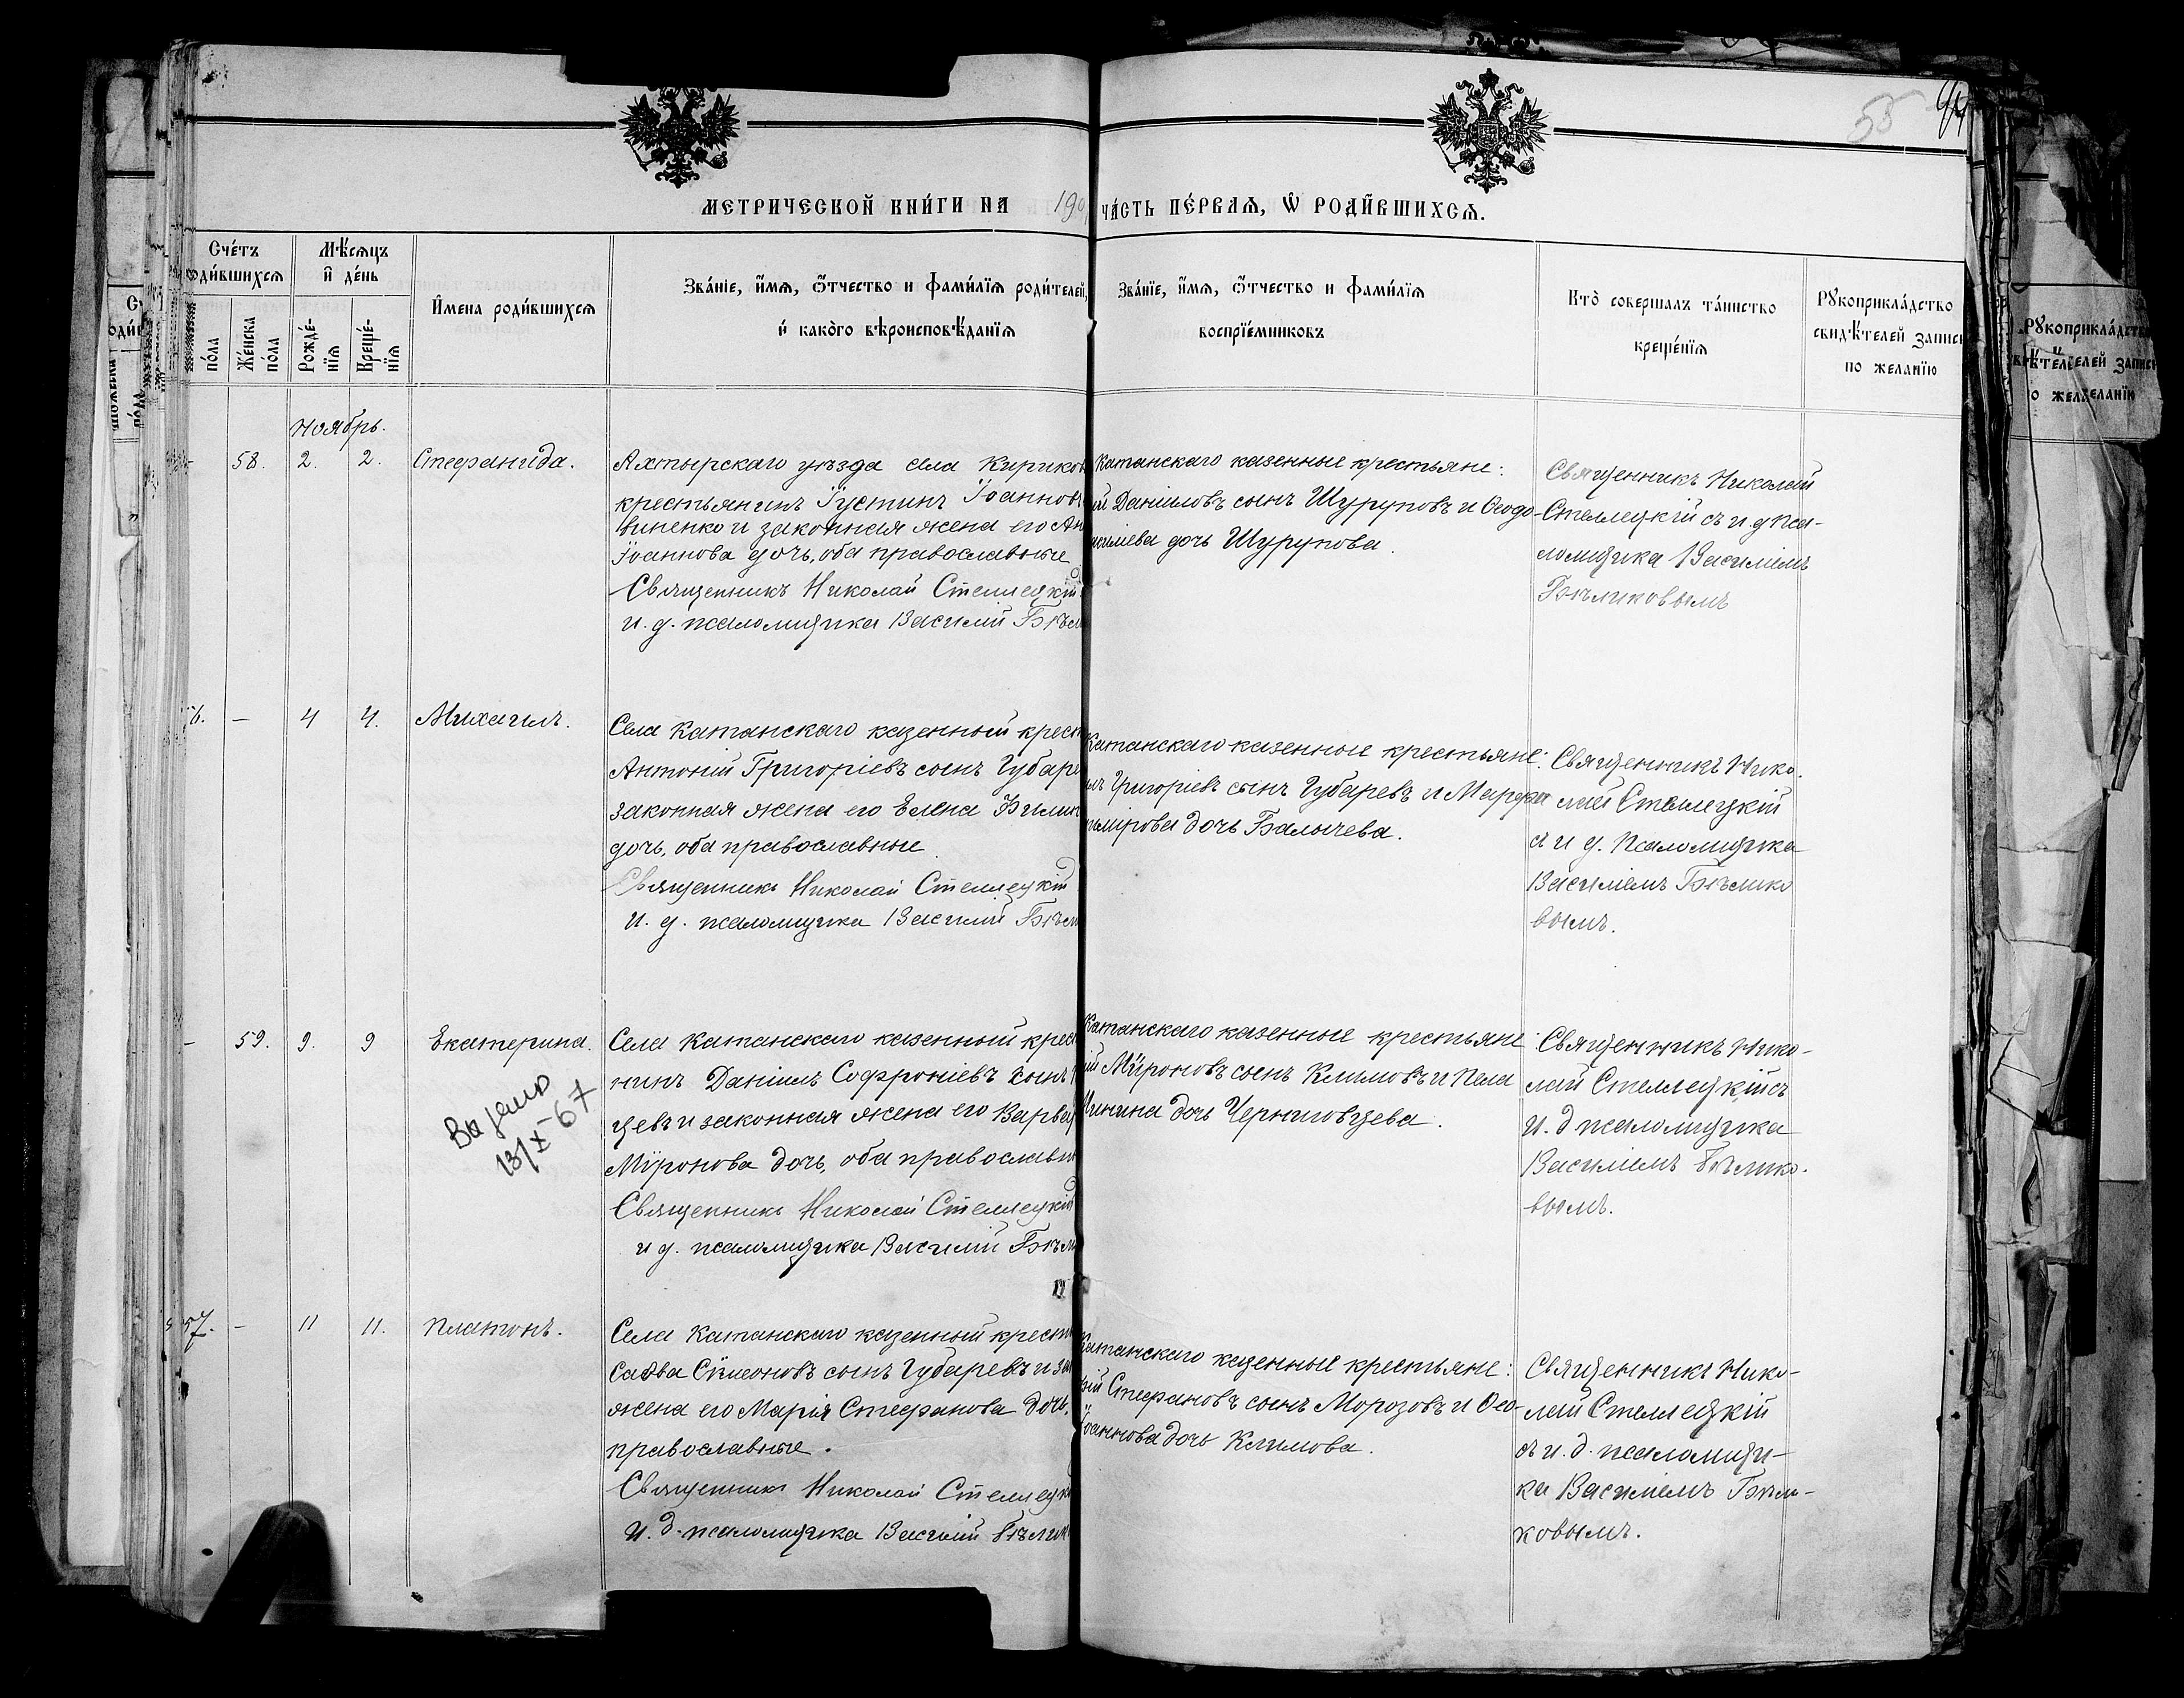 55
94
МЕТРИЧЕСКОЙ КНИГИ НА 190
ЧАСТЬ ПЕРВАЯ, Ѡ РОДИВШИХСЯ.
Счетъ родившихся
пола
Женска пола
Мѣсяцъ и день
Рожде-нія
Креще-нія
Имена родившихся
Званіе, имя, ѿчество и фамилія родителей,
и какого вѣроисповѣданія
Званіе, имя, ѿчество и фамилія
воспріемниковъ
Кто совершалъ таинство
крещенія
Рукоприкладство
свидѣтелей записи
по желанію
Ноябрь.
58. 2. 2. Стефанида.
Ахтырскаго уѣзда села Кириков
крестьянинъ Іустинъ Іоаннов
виненко и законная жена его Ан
Іоаннова дочь, оба православные
Священникъ Николай Стеллецкій
И. д. псаломщика Василій Бѣл
Катанскаго казенные крестьяне:
ій Даніиловъ сынъ Шуруповъ и Ѳеодо-
дочь Шурупова.
Священникъ Николай
Стеллецкій съ и д пса-
ломщика Василіемъ
Бѣликовымъ
6. – 4 4. Михаилъ.
Села Катанскаго казенный крест
Антоній Григоріевъ сынъ Губаре
законная жена его Елена
дочь, оба православные
Священникъ Николай Стеллецкій
И. д. псаломщика Василій Бѣл
Катанскаго казенные крестьяне:
Григоріевъ сынъ Губаревъ и Марѳа
дочь Балычева.
Священникъ Нико-
лай Стеллецкій
съ и д. псаломщика
Василіемъ Бѣлико
вымъ.
– 59. 9. 9 Екатерина.
Выдано
13/X-67
Села Катанскаго казенный крес
нинъ Даніилъ Софроніевъ сынъ
цевъ и законная жена его Варвар
Мѵронова дочь, оба православн
Священникъ Николай Стеллецкій
и д. псаломщика Василій Бѣл
Катанскаго казенные крестьяне
ій Мѵроновъ сынъ Климовъ и Пела
дочь Черниговцева.
Священникъ Нико-
лай Стеллецкій съ
И. д псаломщика
Василіемъ Бѣлико-
вымъ.
57. – 11 11. Платонъ.
Села Катанскаго казенный крест
Савва Сѵмеоновъ сынъ Губаревъ и за
жена его Марія Стефанова дочь,
православные.
Священникъ Николай Стеллецк
И. д. псаломщика Василій Бѣлик
Катанскаго казенные крестьяне:
ій Стефановъ сынъ Морозовъ и Ѳео-
Іоаннова дочь Климова.
Священникъ Нико-
лай Стеллецкій
съ и. д. псаломщи-
ка Василіемъ Бѣли-
ковымъ.